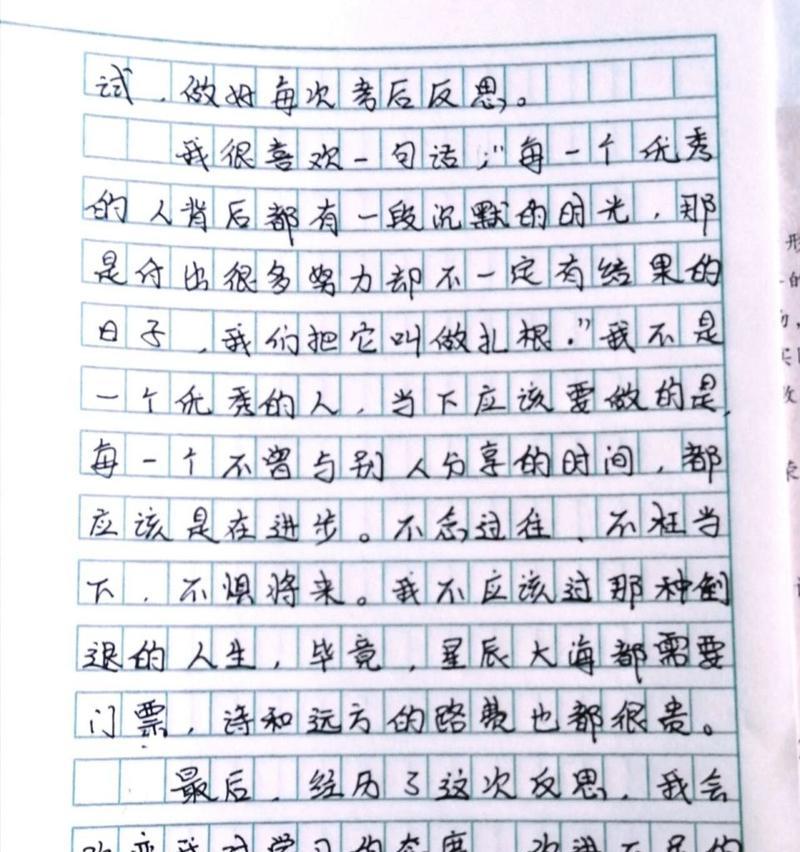 试，做好每次考后反思。
我很喜欢一句话；“每一个优秀
的人背后都有一段沉默的时光，那
是付出很多努力却不一定有结果的
日子，我们把它叫做扎根。”我不是
一个优秀的人，当下应该要做的是，
每一个不曾与别人分享的时间，都
应该是在进步。不念过往、不枉当
下，不惧将来。我不应该过那种倒
退的人生，毕竟，星辰大海都需要
门票，诗和远方的路费也都很贵。
最后，经历了这次反思，我会
改变我对学习的态度